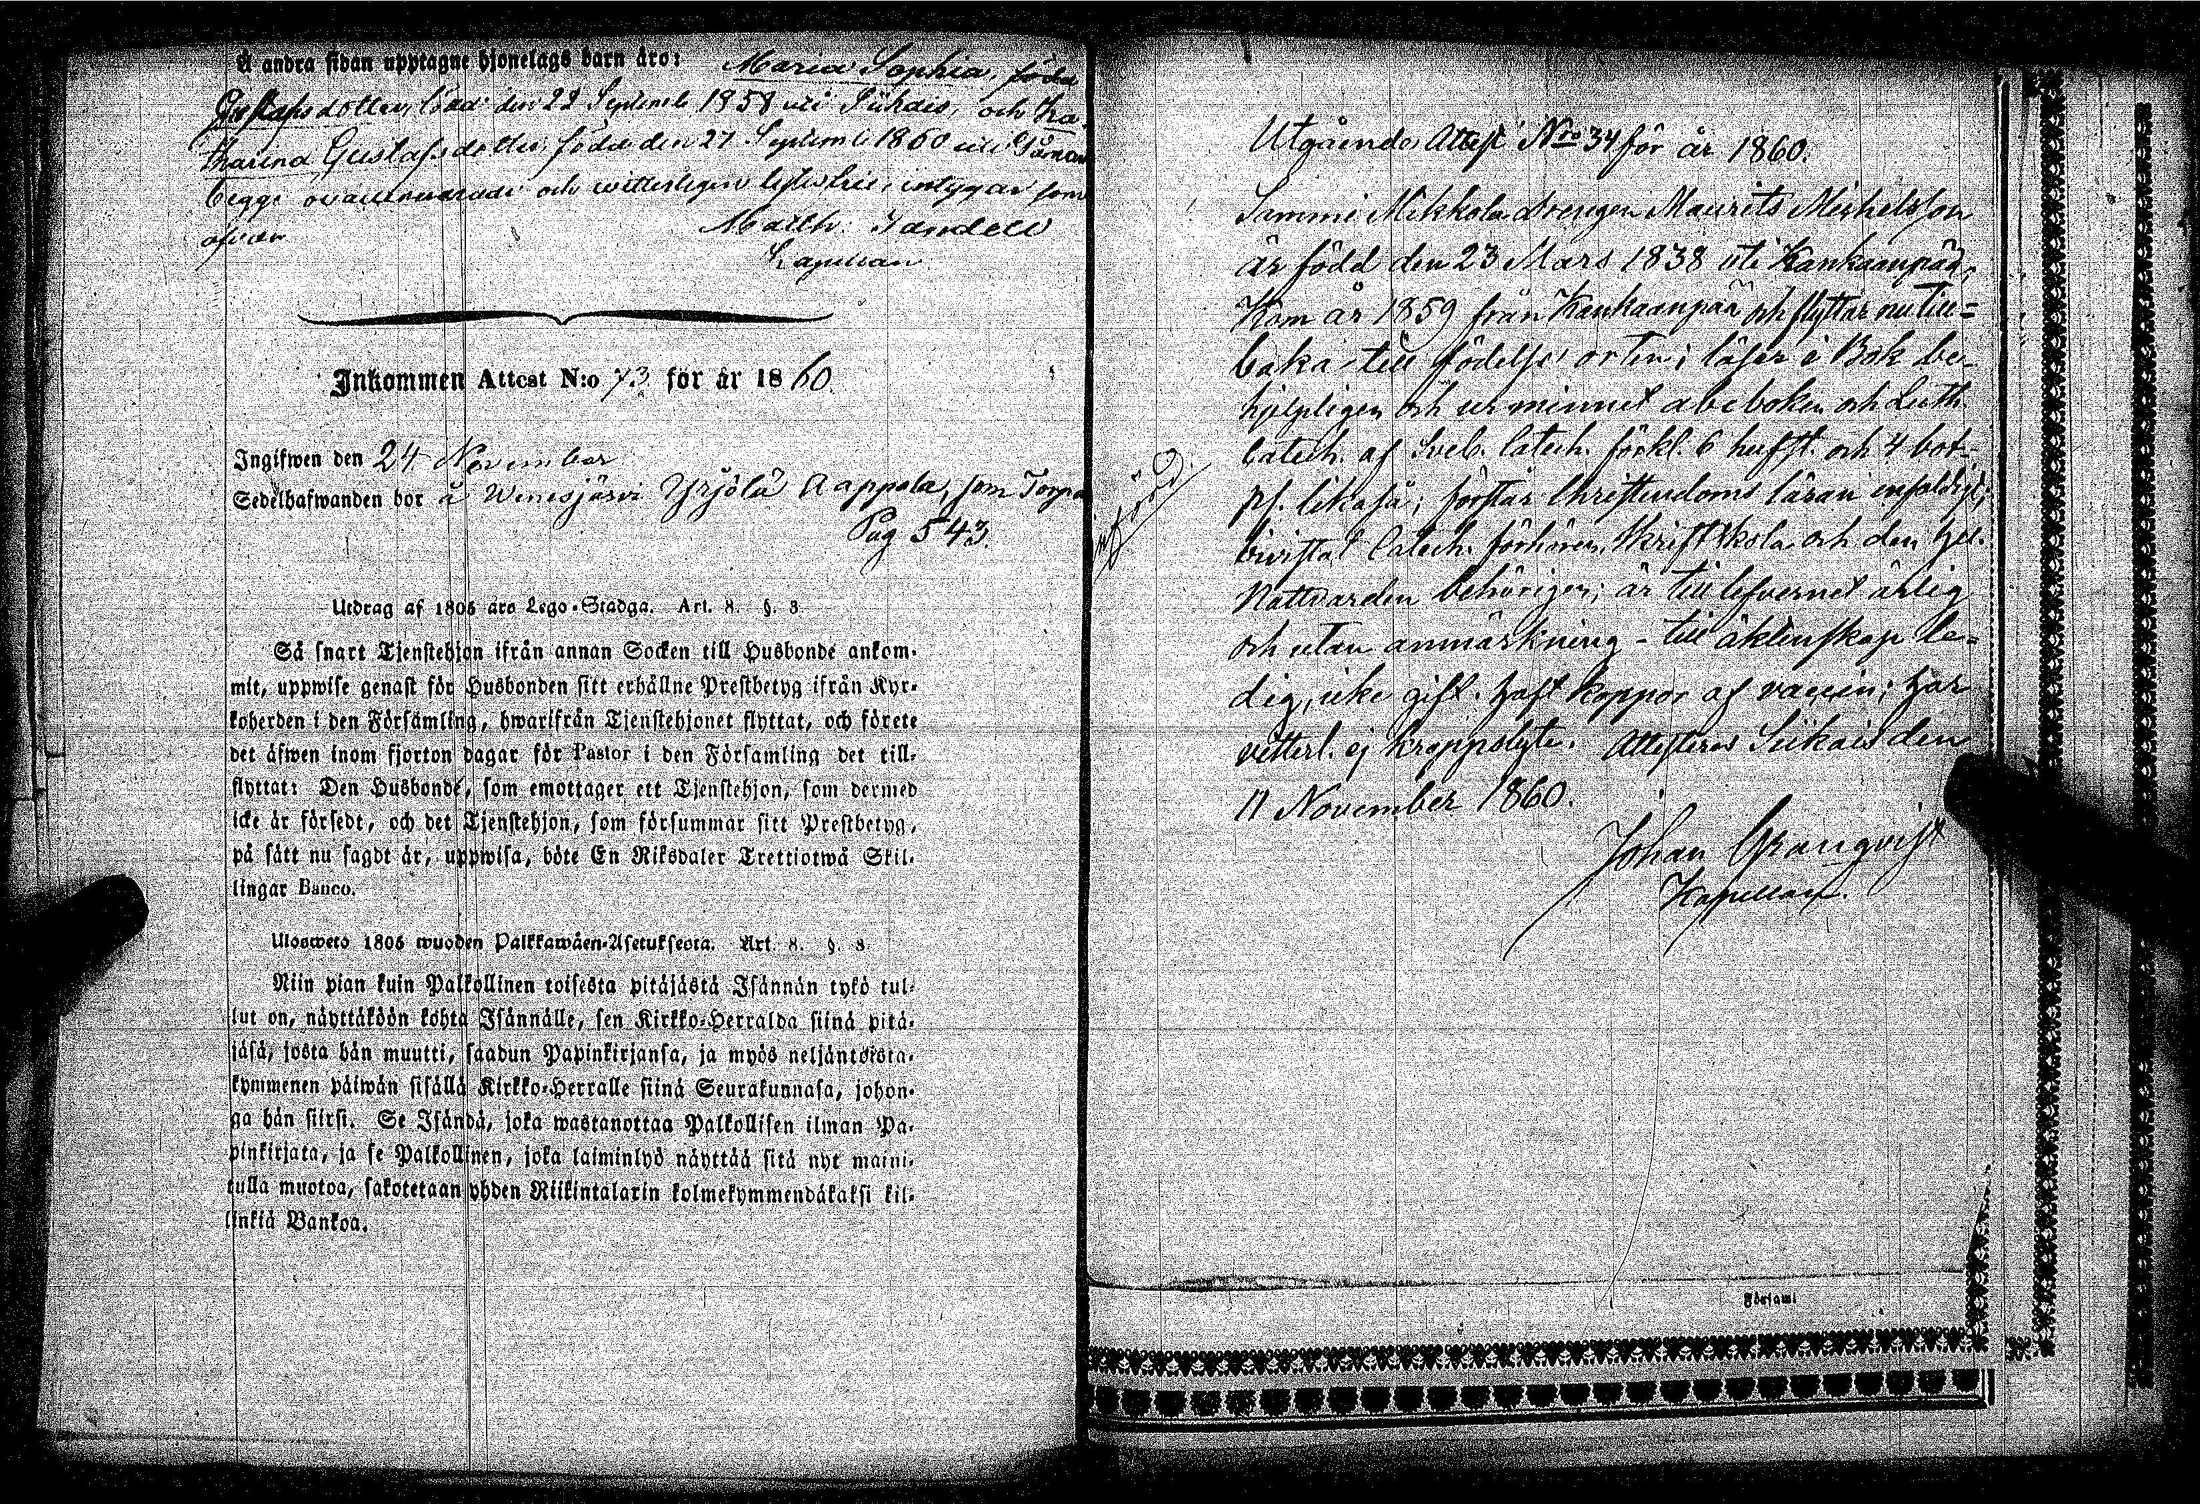 Å andra sidan upptagne hjonelags barn äro: Maria Sophia, född
Gustafsdotter, född den 28 Septemb 1858 uti Siikais, och Ka-
tharina Gustafsdotter född den 27 Septemb 1860 uti
begge ovaccinerade och witterligen lytesfrie, intygar som
ofvan Matth. Tandell
Kapellan
Inkommen Attest N:o 73 för år 1860.
Ingifwen den 24 November
Sedelhafwanden bor å Wenesjärvi Yrjölä Aappala, som Torpa
Pag 543.
Utdrag af 1805 års Lego-Stadga. Art. 8. §. 8.
Så snart Tjenstehjon ifrån annan Socken till Husbonde ankom-
mit, uppwise genast för Husbonden sitt erhållne Prestbetyg ifrån Kyr-
koherden i den Församling, hwarifrån Tjenstehjonet flyttat, och förete
det äfwen inom fjorton dagar för Pastor i den Församling det till-
flyttat: Den Husbonde, som emottager ett Tjenstehjon, som dermed
icke är försedt, och det Tjenstehjon, som försummar sitt Prestbetyg,
på sätt nu sagdt är, uppwisa, böte En Riksdaler Trettiotwå Skil-
lingar Banco.
Ulosweto 1805 wuoden Palkkawäen-Asetuksesta. Art. 8. §. 8.
Niin pian kuin Palkollinen toisesta pitäjästä Isännän tykö tul-
lut on, näyttäköön kohta Isännälle, sen Kirkko-Herralda siinä pitä-
jäsä, josta hän muutti, saadun Papinkirjansa, ja myös neljäntoista-
kymmenen päiwän sisällä Kirkko-Herralle siinä Seurakunnasa, johon-
ga hän siirsi. Se Isändä, joka wastanottaa Palkollisen ilman Pa-
pinkirjata, ja se Palkollinen, joka laiminlyö näyttää sitä nyt maini-
tulla muotoa, sakotetaan yhden Riikintalarin kolmekymmendäkaksi kil-
linkiä Bankoa.
Utgående Attest Nro 34 för år 1860.
Sammi Mikkola Drengen Maurits Michelsson
är född den 23 Mars 1838 uti Kankaanpää,
Kom år 1859 från Kankaanpää och flyttar nu till=
baka till födelse orten; läser i Bok be-
hjelpligen och ur minnet abcboken och Luth.
Catech. af Sveb. Catech. förkl. 6 hufst. och 4 bot-
ps. likaså; förstår Christendoms läran enfaldigt;
bivistat Catech. förhören, Skriftskola och den hel.
Nattvarden behörigen; är till lefvernet ärlig
och utan anmärkning - till äktenskap le-
dig, icke gift. haft koppor af vaccin; har
vetterl. ej kroppslyte. Attesteras Siikais den
11 November 1860.
Johan Granqvist
Kapellan.
införd.
Församl